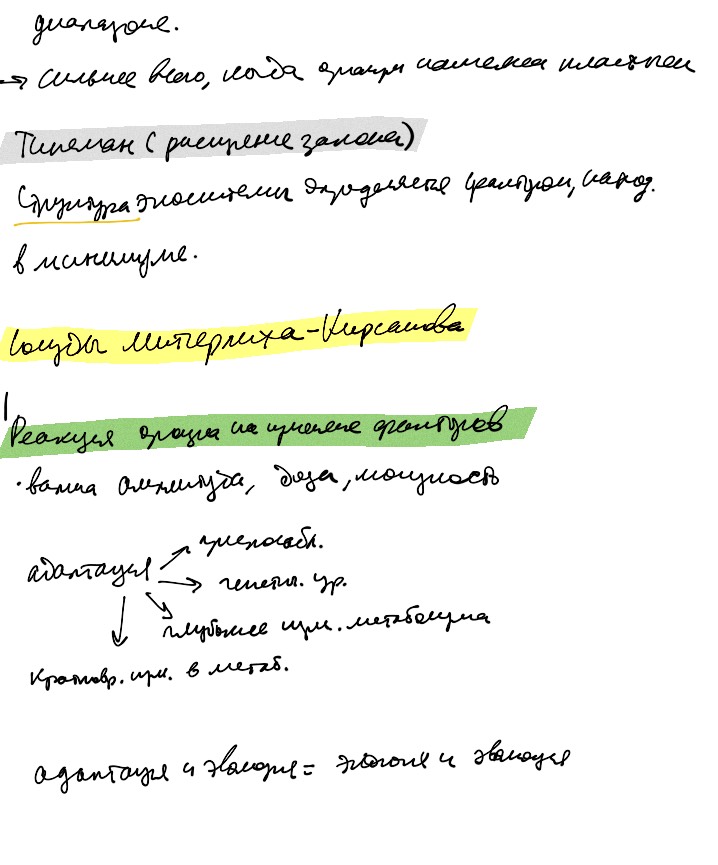 диапазоне.
→ сильнее всего, когда организм наименее пластичен
Тинеман (расширение закона)
Структура экосистемы определяется фактором, наход.
в минимуме.
Митчерлиха-Кирсанова
Реакция на факторов
• важна амплитуда, доза, мощность
приспособл.
адаптация
генетич. ур.
глубокие изм. метаболизма
кратковр. изм. в метаб.
адаптация и эволюция = экология и эволюция